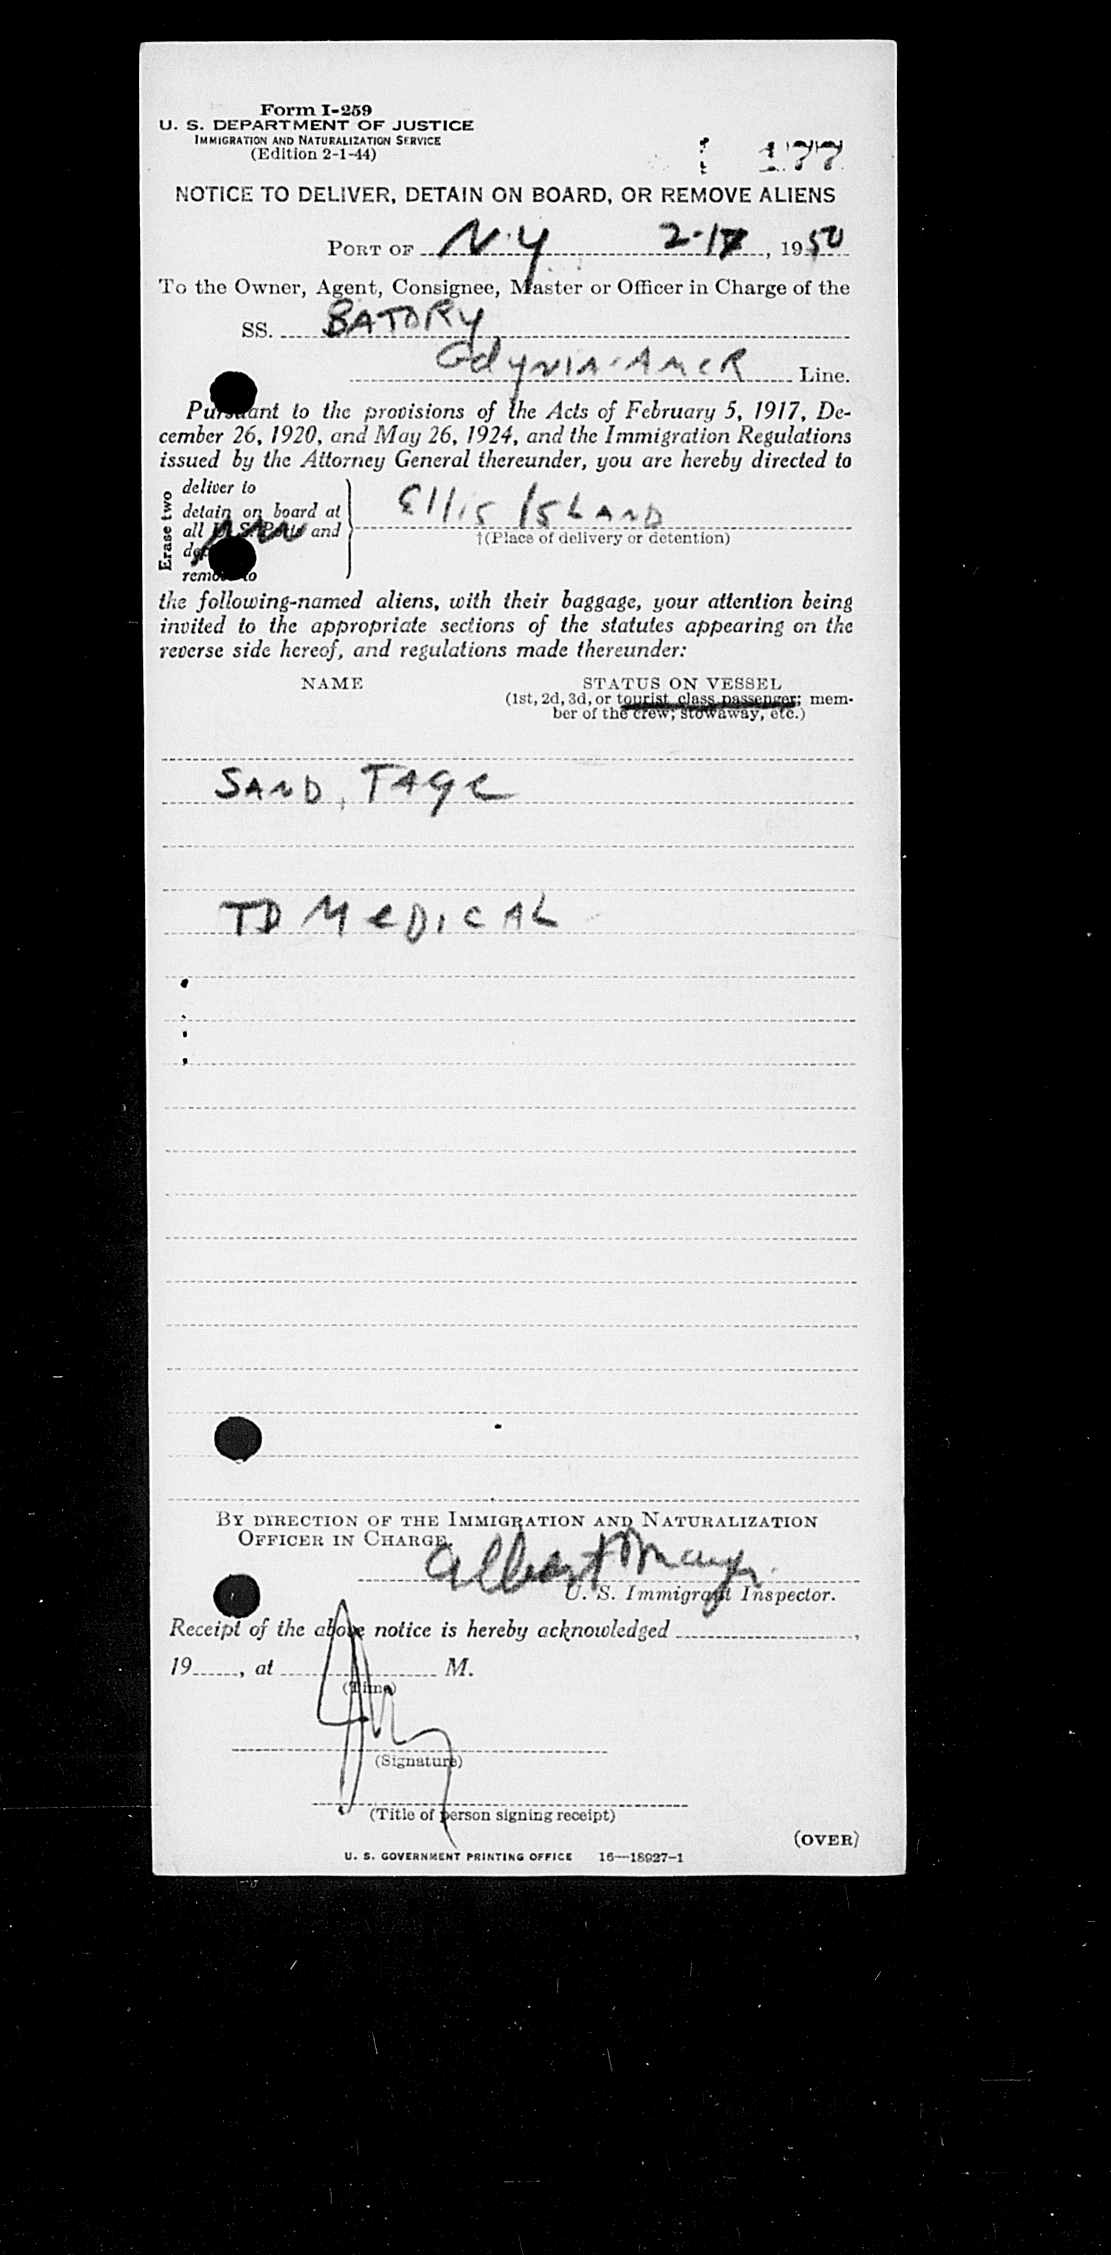 Form I-259
U. S. DEPARTMENT OF JUSTICE
IMMIGRATION AND NATURALIZATION SERVICE
(Edition 2-1-44)
177
NOTICE TO DELIVER, DETAIN ON BOARD, OR REMOVE ALIENS
PORT OF N.Y 2-17, 1950
To the Owner, Agent, Consignee, Master or Officer in Charge of the
SS. BATORY
Gdynia-Amer Line.
Pursuant to the provisions of the Acts of February 5, 1917, De-
cember 26, 1920, and May 26, 1924, and the Immigration Regulations
issued by the Attorney General thereunder, you are hereby directed to
Erase two
deliver to
detain on board at
all U. S. Ports and
remove to
Ellis Island
†(Place of delivery or detention)
the following-named aliens, with their baggage, your attention being
invited to the appropriate sections of the statutes appearing on the
reverse side hereof, and regulations made thereunder:
NAME STATUS ON VESSEL
(1st, 2d, 3d, or tourist class passenger; mem-
ber of the crew; stowaway, etc.)
SAND, TAGE
TD MEDICAL
BY DIRECTION OF THE IMMIGRATION AND NATURALIZATION
OFFICER IN CHARGE.
Albert Mayer
U. S. Immigrant Inspector.
Receipt of the above notice is hereby acknowledged ,
19 , at M.
(Time)
(Signature)
(Title of person signing receipt)
(OVER)
U. S. GOVERNMENT PRINTING OFFICE 16—18927-1